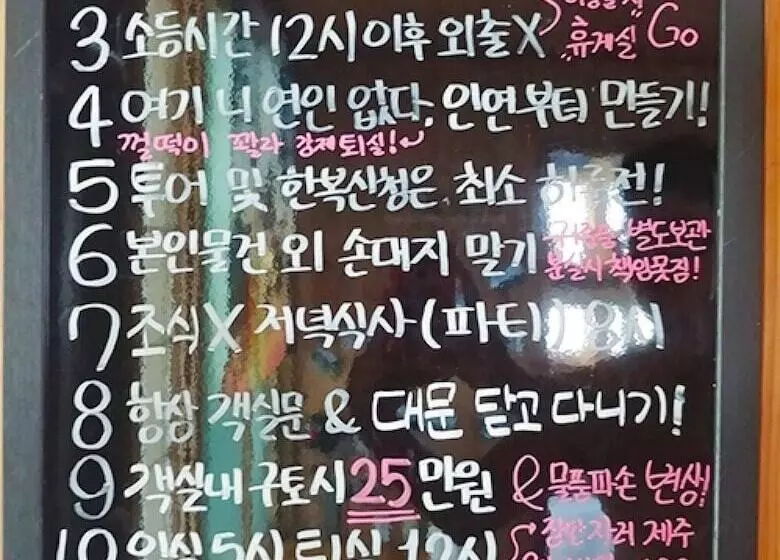 3 소등시간 12시 이후 외출X
휴게실 Go
4 여기 니 연인 없다. 인연부터 만들기!
껄떡이 꽐라 강제퇴실!
5 투어 및 한복신청은 최소 하루전!
6 본인물건 외 손대지 말기
귀중품 별도보관
분실시 책임못짐!
7 조식X 저녁식사(파티) 8시
8 항상 객실문 & 대문 닫고 다니기!
9 객실내 구토시 25만원 & 물품파손 변상!
10 입실 5시 퇴실 12시